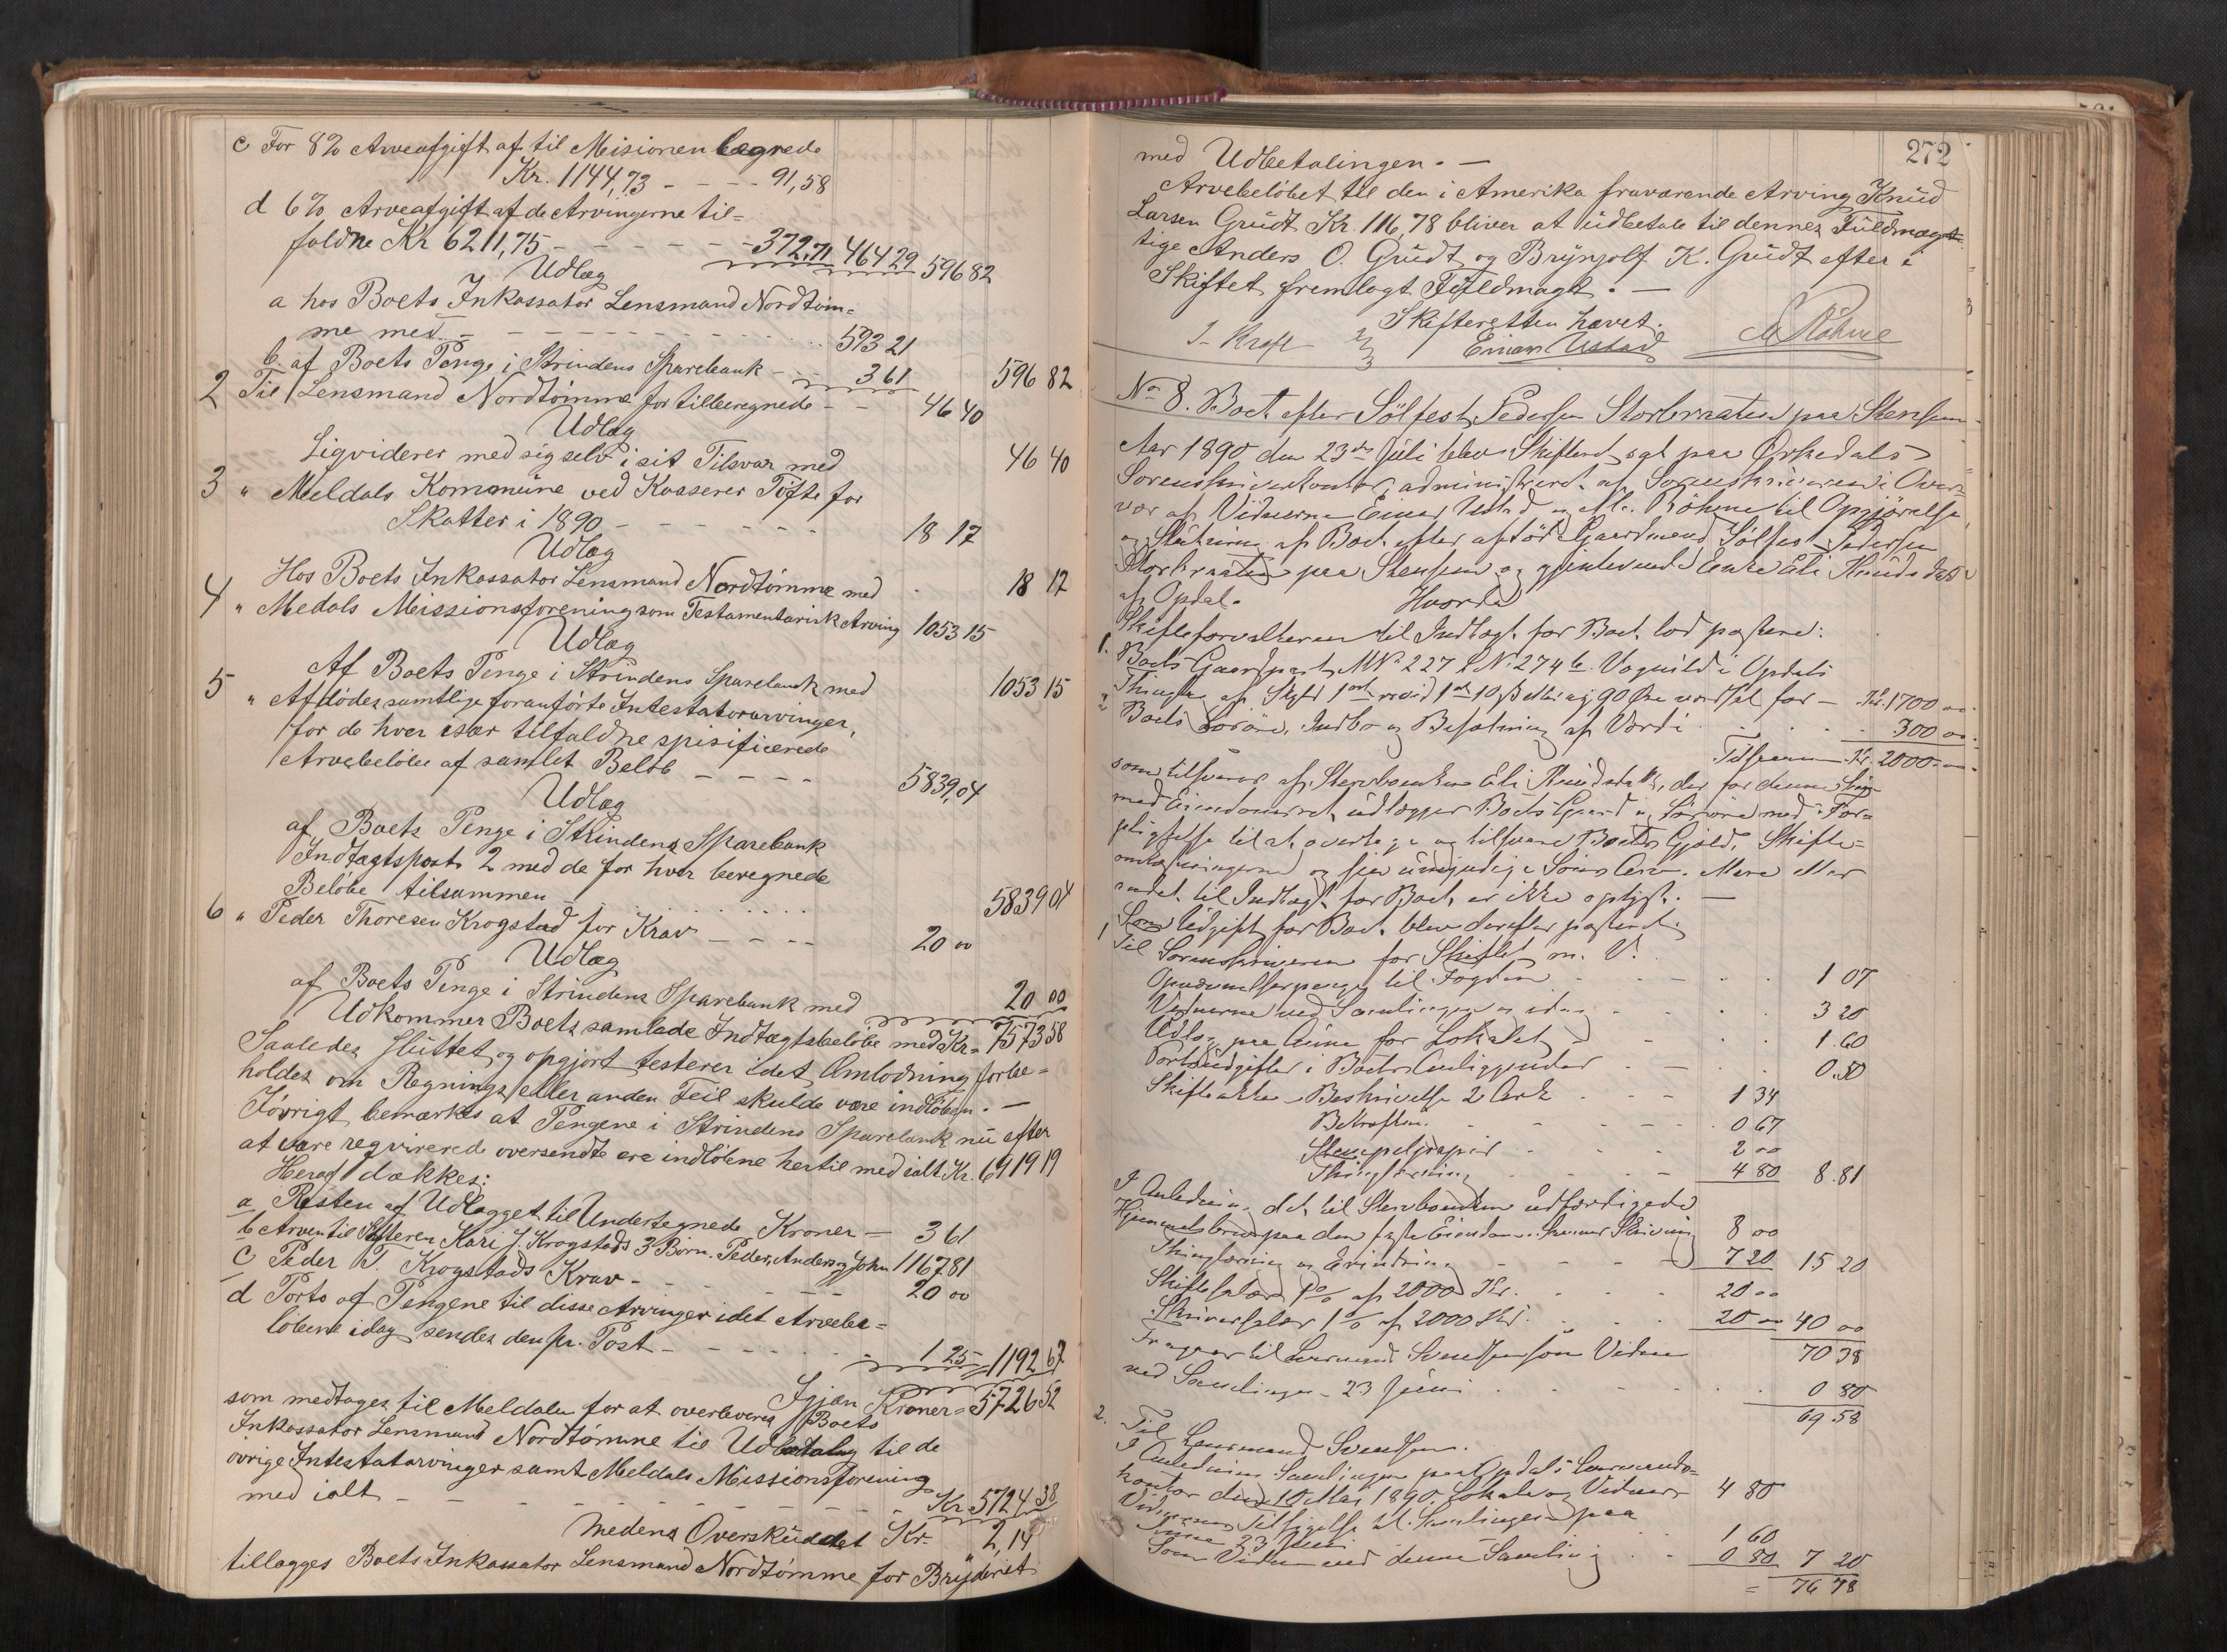 c For 8% Arveafgift af til Misionen beregnede
Kr. 1144,73 - - - - 91,58
d 6% Arveafgift af de Arvingerne til=
faldne Kr 6211,75 - - - - - - 372,71 464 29 596 82
Udlæg
a hos Boets Inkassator Lensmand Nordtøm=
me med - - - - - - 593 21
b. af Boets Penge i Strindens Sparebank - - - 3 61 596 82
2 Til Lensmand Nordtømme for tilberegnede - - 46 40
Udlæg
Liqviderer med sig selv i sit Tilsvar med 46 40
3 " Meldals Kommune ved Kasserer Tofte for
Skatter i 1890 - - - - - - 18 17
Udlæg
Hos Boets Inkassator Lensmand Nordtømme med 18 17
4 " Medals Missionsforening som Testamentarisk Arving 1053 15
Udlæg
Af Boets Penge i Strindens Sparebank med 1053 15
5 " Afdødes samtlige foranførte Intestatarvinger,
for de hver især tilfaldne spisificerede
Arvebeløbe af samlet Beløb - - - - 5839,04
Udlæg
af Boets Penge i Strindens Sparebank
Indtægtspost 2 med de for hver beregnede
Beløbe tilsammen 5839 04
6 " Peder Thoresen Krogstad for Krav - - - - 20 00
Udlæg
af Boets Penge i Strindens Sparebank med 20 00
Udkommer Boets samlede Indtægtsbeløbe med Kr= 7573 58
Saaledes sluttet og opgjort testerer idet Omlodning forbe=
holdes om Regnings eller anden Feil skulde være indløben. —
Iøvrigt bemærkes at Pengene i Strindens Sparebank nu efter
at være reqvirerede oversendte ere indløbne hertil med ialt Kr. 6919 19
Heraf dækkes:
a Resten af Udlægget til Undertegnede Kroner — 3 61
b Arven til Søsteren Kari J. Krogstads 3 Børn. Peder, Anders og John 1167 81
c Peder T. Krogstads Krav - - - - - - 20 00
d Porto af Pengene til disse Arvinger idet Arvebe=
løbene idag sendes den pr. Post - - - - - - 1 25 1192 67
Igjen Kroner = 5726 52
som medtages til Meldalen for at overleveres Boets
Inkassator Lensmand Nordtømme til Udbetaling til de
øvrige Intestatarvinger samt Meldals Missionsforening
med ialt - - - - - - Kr. 5724 38
medens Overskuddet Kr. 2,14
tillægges Boets Inkassator Lensmand Nordtømme for Bryderiet
272
med Udbetalingen. —
Arvebeløbet til den i Amerika fraværende Arving Knud
Larsen Grudt Kr. 116,78 bliver at udbetale til dennes Fuldmæg=
tige Anders O. Grudt og Brynjolf K. Grudt efter i
Skiftet fremlagt Fuldmagt. —
Skifteretten hævet.
J. Kraft Einar Ustad M Röhme
No 8. Boet efter Sølfest Pedersen Storbraaten paa Stensem
Aar 1890 den 23de Juli blev Skifteret sat paa Ørkedals
Sorenskriverkontor, administreret af Sorenskriveren i Over=
vær af Vidnerne Einar Ustad og M. Röhme til Opgjørelse
og Slutning af Boet efter afdøde Gaardmand Sølfest Pedersen
Storbraaten paa Stensem og gjenlevende Enke Eli Knudsdatter
af Opdal. Hvorda
Skifteforvalteren til Indtægt for Boet lod postere:
1. Boets Gaardpart MNo 227 LNo 274 b. Vognild i Opdals
Thinglag af Skyld 90 Øre for — Kr. 1700 00
2 Boets Løsøre, Indbo og Besætning af Værdi 300 00
Tilsammen Kr. 2000 00
som tilsvares af Stervboenken Eli Knudsdatter, der for denne Sum
med Eiendomsret udlægges Boets Gaard og Løsøre med For=
pligtelse til at overtage og tilsvare Boets Gjæld, Skifte=
omkostningerne og sin umyndige Søns Arv. Mere eller
andet til Indtægt for Boet er ikke oplyst. —
Som Udgift for Boet blev derefter posteret:
1 Til Sorenskriveren for Skiftet m. V.
til Fogden 1 07
Vidnerne ved Samlingen idag 3 20
Udlæg paa Aune for Lokalet 1.60
Portoudgifter i Boets Anliggender 0.50
Skifteakten - Beskrivelse 2 Ark 1 34
Bekræftn. 0 67
Stempelpapir 2 00
Thinglæsning 4 80 8.81
I Anledning det til Stervboenken udfærdigede
Hjemmelsbrev paa den faste Eiendom. Skriving 8 00
Thinglæsning og Erindring 7 20 15 20
Skiftesalær 1% af 2000 Kr. 20 00
Skriversalær 1% af 2000 Kr. 20 00 40 00
70 38
Fragaar til Lensmand Svendsen som Vidne
ved Samlingen 23 Juni 0 80
69 58
2. Til Lensmand Svendsen.
I Anledning Samlingen paa Opdals Lensmands=
kontor den 10 Mai 1890. Lokale og Vidner 4 80
Vidnernes Tilsigelse til Samlingen paa
Aune 23 Juni 1 60
Som Vidne ved denne Samling 0 80 7 20
= 76 78